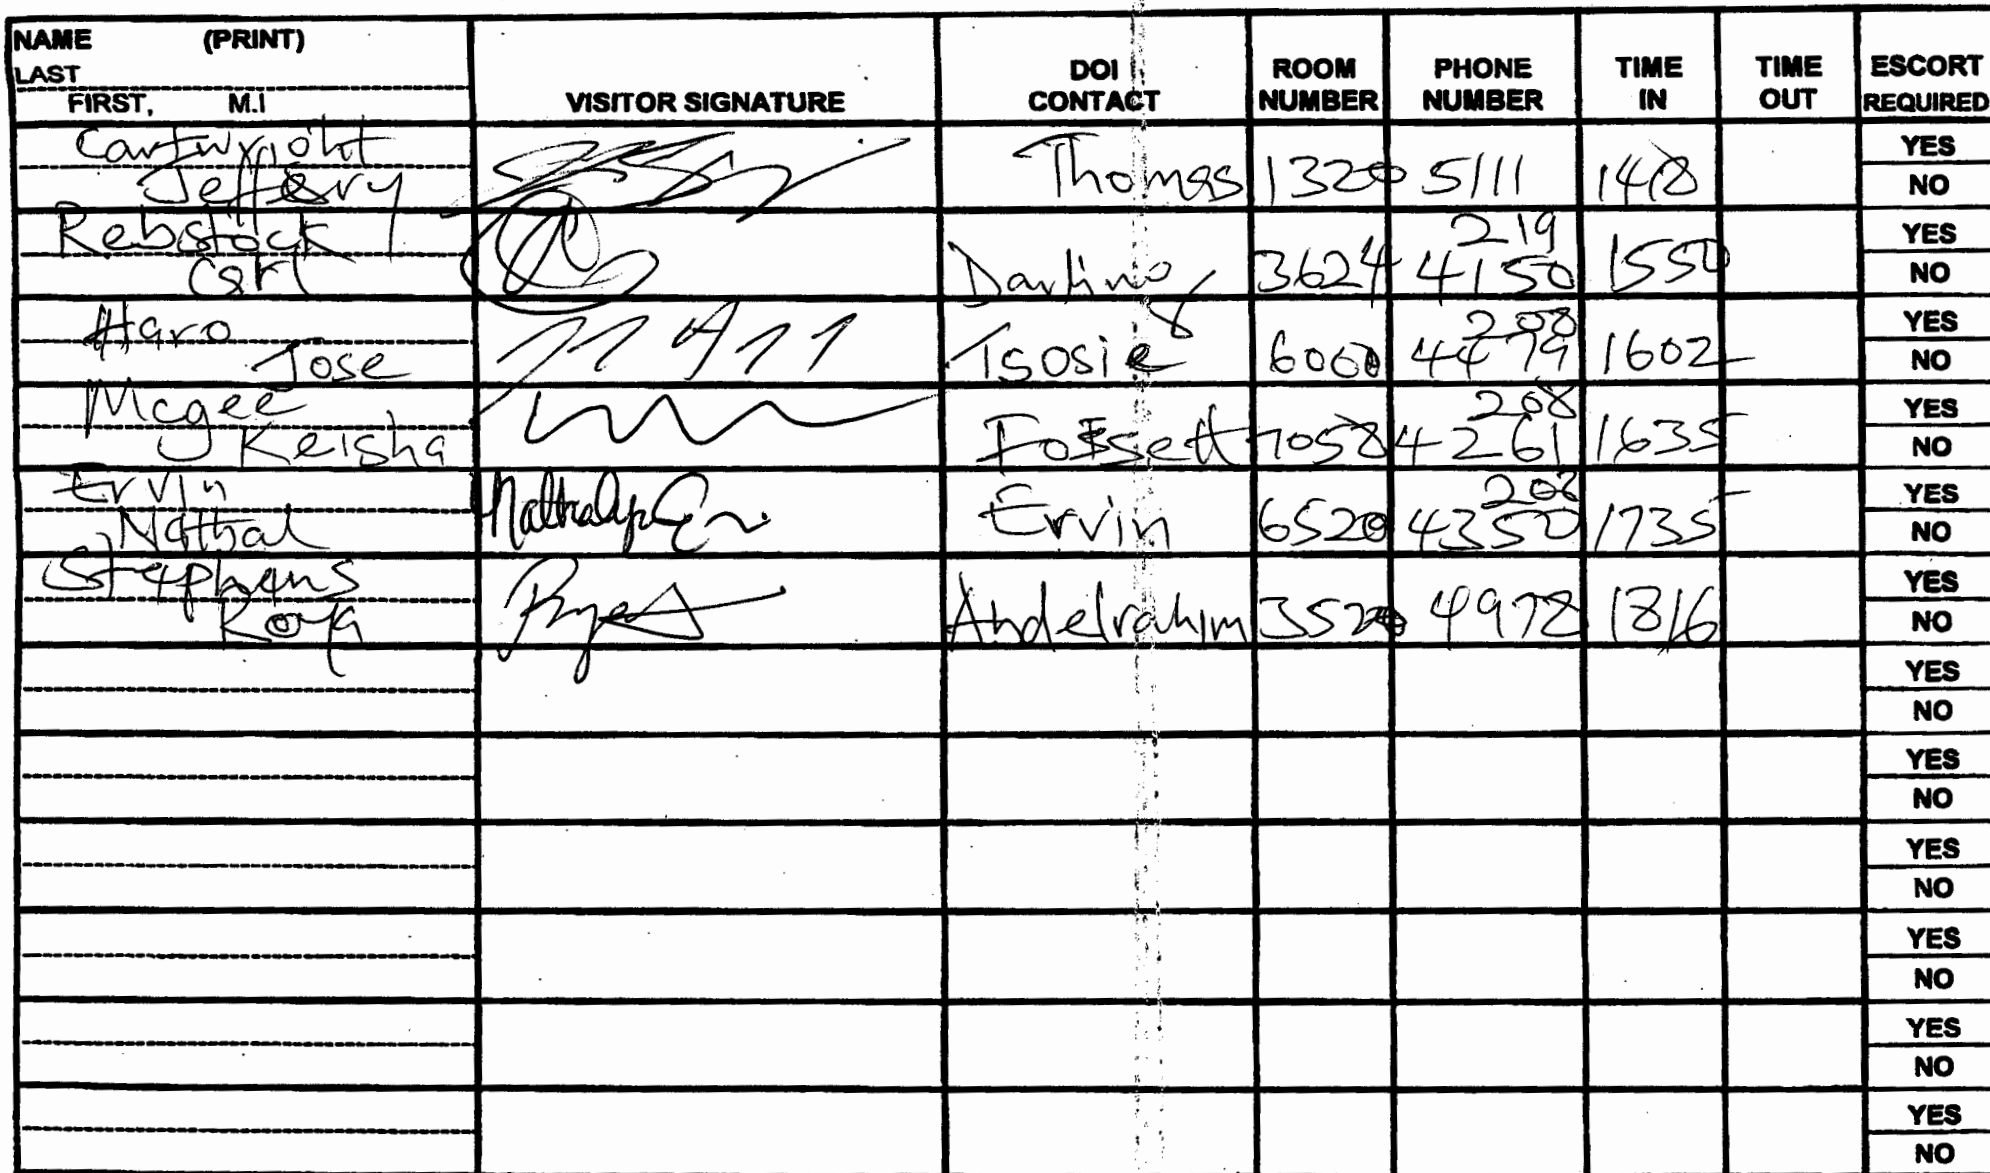 NAME (PRINT)
LAST
FIRST, M.I
VISITOR SIGNATURE
DOI CONTACT
ROOM NUMBER
PHONE NUMBER
TIME IN
TIME OUT
ESCORT REQUIRED
Cartwright
Jeffery
Thomas 1320 5111 1418
YES
NO
Rebstock
Carl
Darling 3624 219 4150 1550
YES
NO
Haro
Jose
Tsosie 6060 208 4479 1602
YES
NO
Mcgee
Keisha
7058 208 4261 1635
YES
NO
Ervin
Ervin 6520 208 4350 1735
YES
NO
Stephens
Roya
Abdelrahim 3520 4978 1816
YES
NO
YES
NO
YES
NO
YES
NO
YES
NO
YES
NO
YES
NO